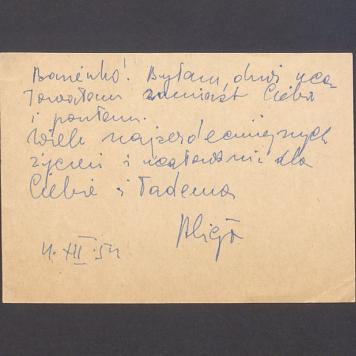 Basieńko! Byłam dziś uca
łowałam zamiast Ciebie
i
Wiele najserdeczniejszych
życzeń i ucałowania dla
Ciebie i Tadeusza
Alicja
4.XII.54